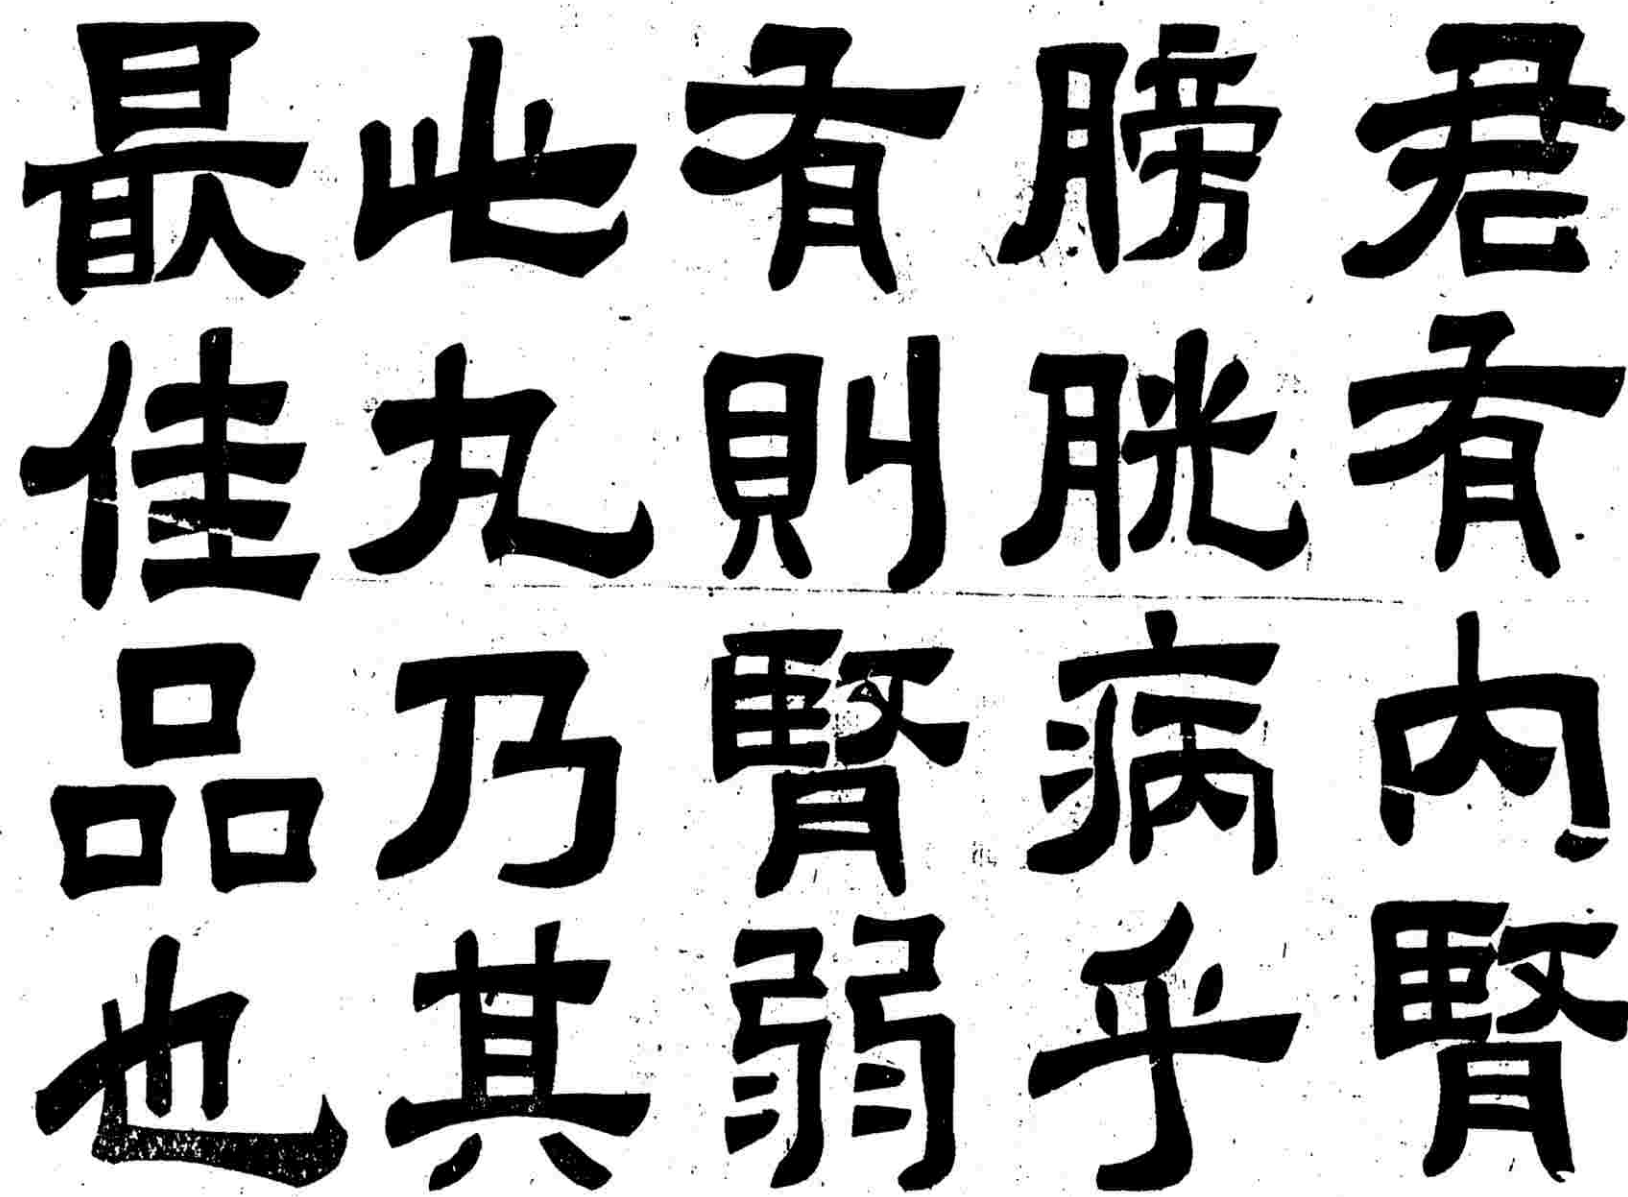 君有内腎
膀胱病乎
有則腎弱
此丸乃其
最佳品也